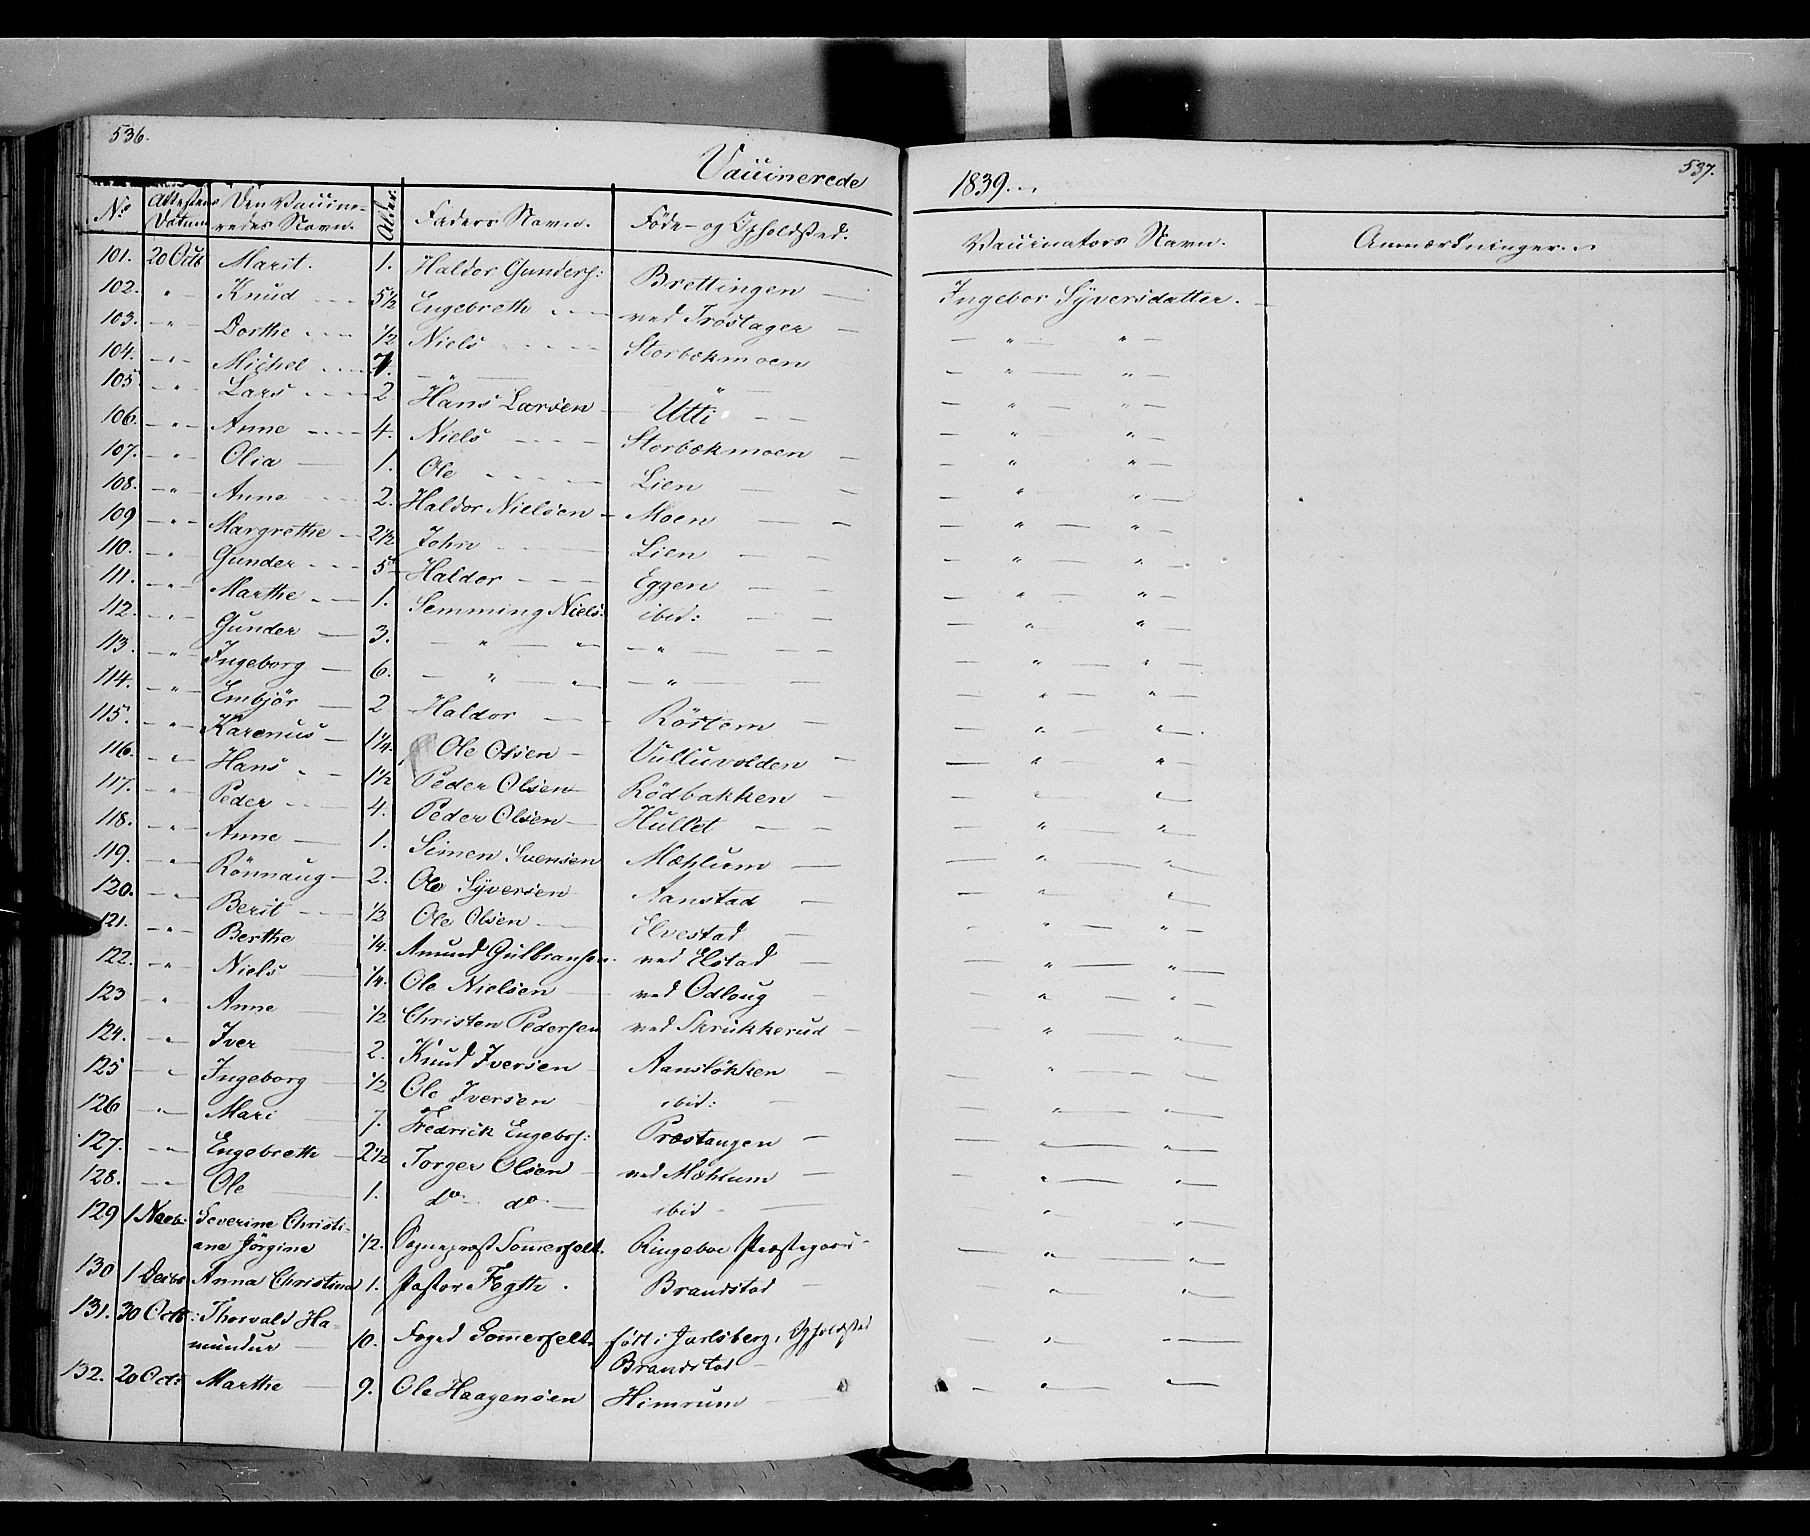 536.
Vaccinerede
No Attestens Datum Den Vaccineredes Navn. Alder. Faders Navn. Føde- og Opholdsted.
101. 20 Octb Marit. 1. Haldor Gunders: Brettingen —
102. — " — Knud 5 1/2 Engebreth ved Trøstager —
103. — " — Dorthe 1/2 Niels Storbekmoen
104. — " — Michel 7. — " — "
105 — " — Lars 2 Hans Larsen Utti —
106. — " — Anne 4. Niels Storbækmoen —
107. — " — Olia 1. Ole Lien —
108. — " — Anne 2. Haldor Nielsen — Moen —
109 — " — Margrethe — 2 1/2 John Lien —
110. — " Gunder 5 Haldor Eggen —
111. — " — Marthe 1. Semming Niels: ibid: —
112. — " — Gunder 3. — " — — " —
113. — " — Ingeborg 6. — " — — " —
114. — " — Embjör 2 Haldor Rörtem —
115. — " — Karenus — 1 1/4. Ole Olsen — Vulluvolden —
116. — " Hans 1 1/2 Peder Olsen Rödbakken —
117. — " Peder 4. Peder Olsen — Hullet —
118. — " — Anne 1. Simen Svensen Mæhlum —
119. — " — Rönnaug — 2. Ole Syversen Aanstad —
120. — " Berit 1/2 Ole Olsen Elvestad —
121. — " — Berthe 1/4. Amund Gulbransen. ved Elstad —
122. — " Niels 1/4. Ole Nielsen ved Odloug —
123 — " Anne 1/2 Christen Pedersen ved Skrukkerud —
124. — " Iver 2. Knud Iversen — Aansløkken —
125 — " Ingeborg — 1/2 Ole Iversen ibid: —
126 — " — Mari 7. Fredrick Engebrs: Præstangen —
127. — " Engebreth — 2 1/2 Torger Olsen — ved Mæhlum —
128. — " Ole 1. do do — ibid —
129 1 Novb: Severine Christiane Jörgine 1/2. Sogneprest Sommerfelt. Ringeboe Præstegaard —
130 1 Decbr Anna Christina 1. Pastor Fegth. Brandstad —
131. 30 Octb: Thorvald Hamundur — 10. Foged Sommerfelt. født i Jarlsberg, Opholdsted Brandstad —
132. 20 Octb Marthe 9. Ole Haagensen Himrum —
537.
1839.
Vaccinators Navn. Anmærkninger.
Ingebor Syversdatter. —